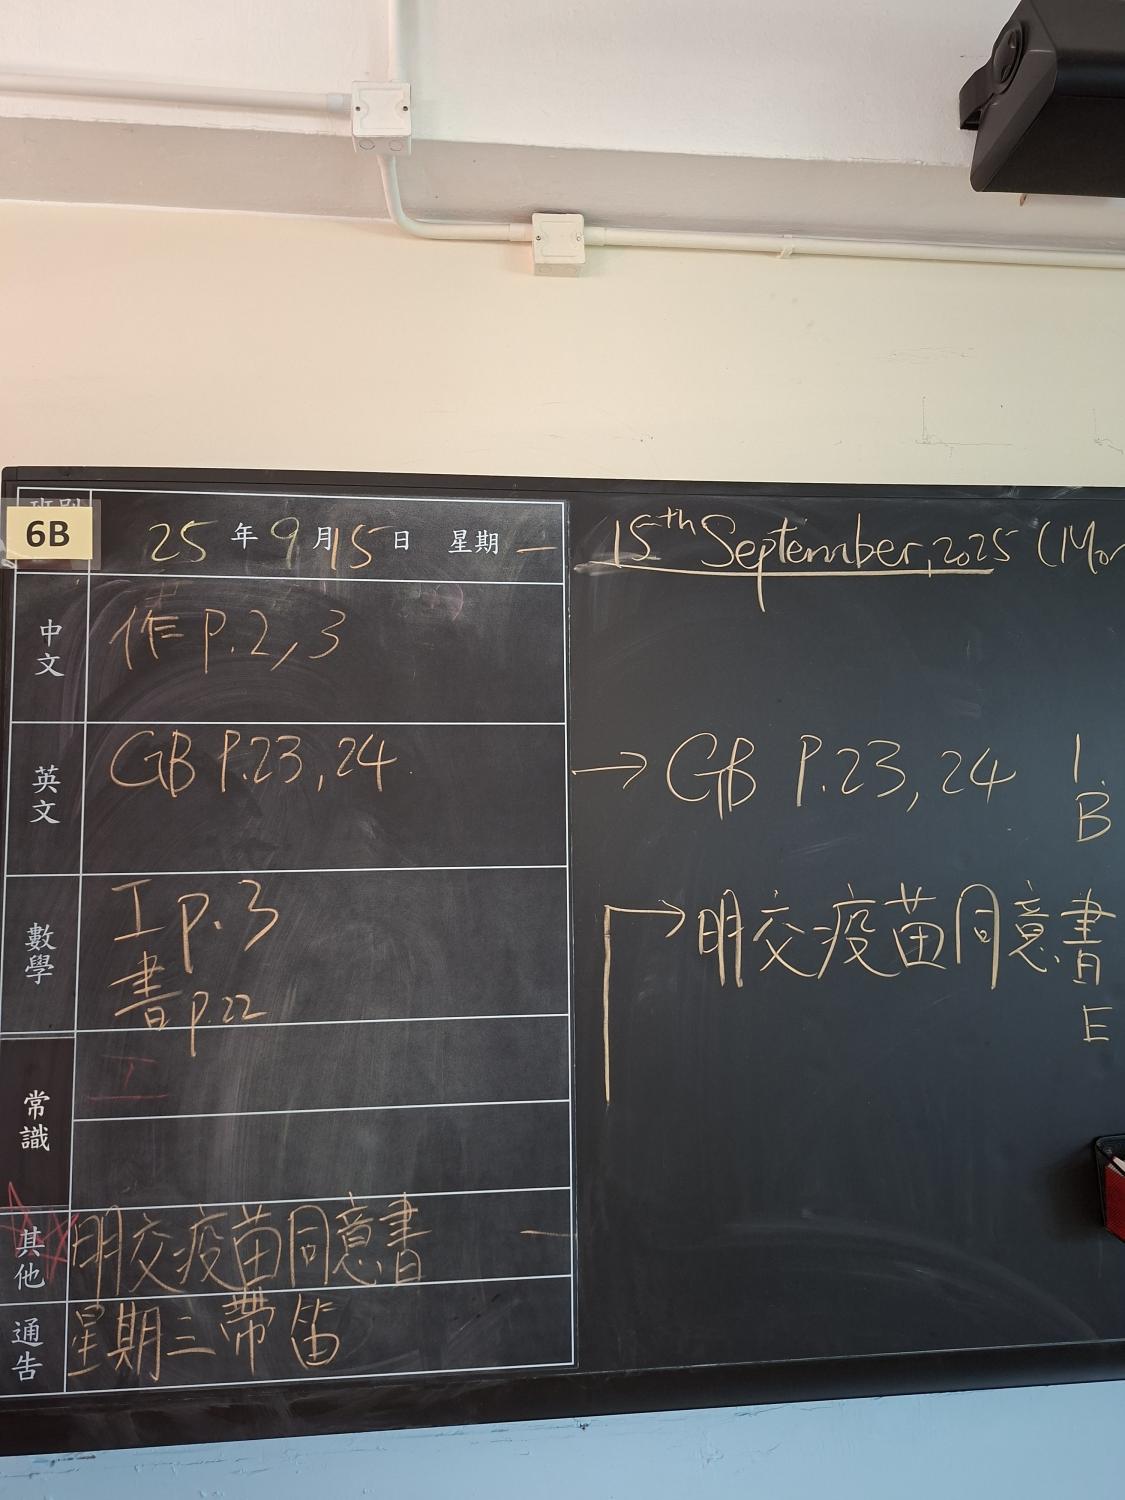 班別
6B
25年9月15日 星期一
中文
作 P.2,3
英文
GB P.23,24
數學
工 p.3
書 p.22
常識
工
其他
明交疫苗同意書
通告
星期三帶笛
15th September, 2025 (Mon
→ GB P.23, 24
I.
B
→ 明交疫苗同意書
E